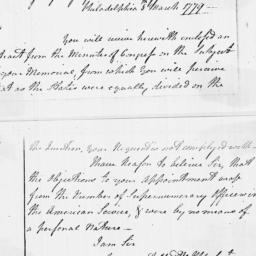 Philadelphia 3d March 1779 —
You will receive herewith enclosed an
tract from the Minutes of Congress on the Subject
your Memorial, from which You will perceive
at as the States were equally divided on the
the Question, your Request is not complyed with —
I have Reason to believe Sir, that
the objections to your Appointment arose
from the Number of Supernumerary officers in
the American Service, & were by no means of
a personal Nature —
I am Sir